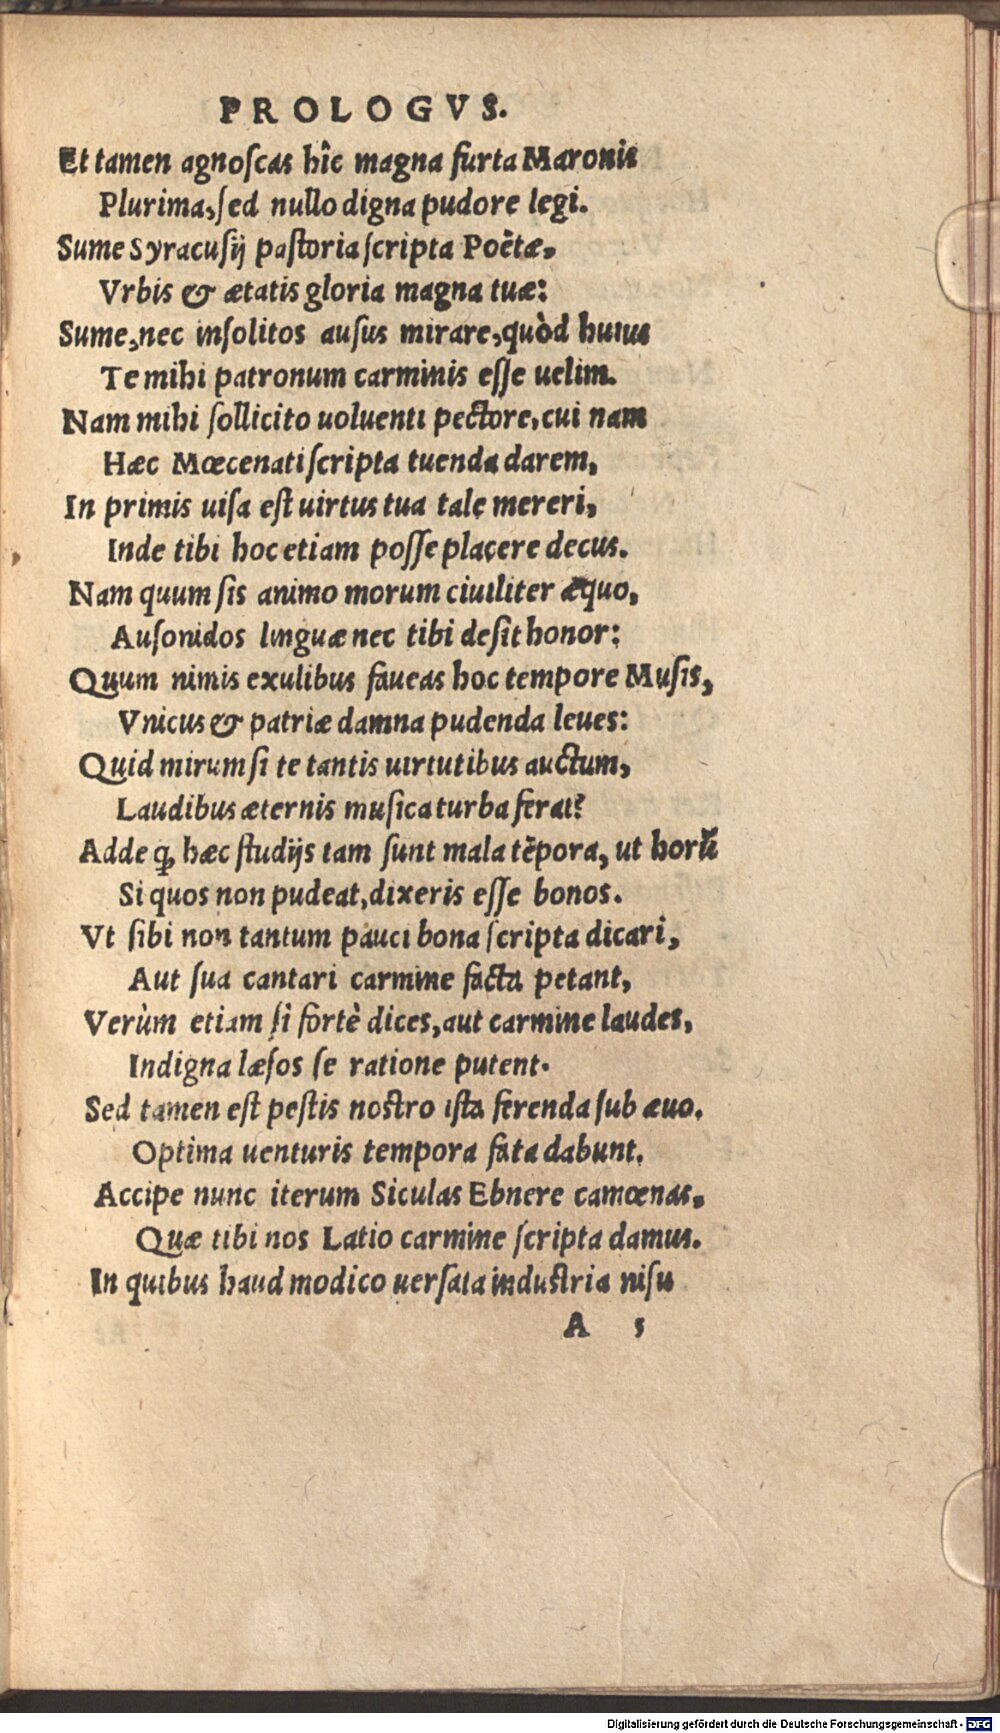 PROLOGVS.
Et tamen agnoſcas hîc magna furta Maronis
Plurima, ſed nullo digna pudore legi.
Sume Syracuſij paſtoria ſcripta Poëtæ,
Vrbis & ætatis gloria magna tuæ:
Sume, nec inſolitos auſus mirare, quòd huius
Te mihi patronum carminis eſſe uelim.
Nam mihi ſollicito uoluenti pectore, cui nam
Hæc Mœcenati ſcripta tuenda darem,
In primis uiſa eſt uirtus tua tale mereri,
Inde tibi hoc etiam poſſe placere decus.
Nam quum ſis animo morum ciuiliter æquo,
Auſonidos linguæ nec tibi deſit honor:
Quum nimis exulibus faueas hoc tempore Muſis,
Vnicus & patriæ damna pudenda leues:
Quid mirum ſi te tantis uirtutibus auctum,
Laudibus æternis muſica turba ferat?
Adde ꝙ hæc ſtudijs tam ſunt mala tẽpora, ut horũ
Si quos non pudeat, dixeris eſſe bonos.
Vt ſibi non tantum pauci bona ſcripta dicari,
Aut ſua cantari carmine facta petant,
Verùm etiam ſi fortè dices, aut carmine laudes,
Indigna læſos ſe ratione putent.
Sed tamen eſt peſtis noſtro iſta ferenda ſub æuo.
Optima uenturis tempora fata dabunt.
Accipe nunc iterum Siculas Ebnere camœnas,
Quæ tibi nos Latio carmine ſcripta damus.
In quibus haud modico uerſata induſtria niſu
A 5
Digitalisierung gefördert durch die Deutsche Forschungsgemeinschaft - DFG